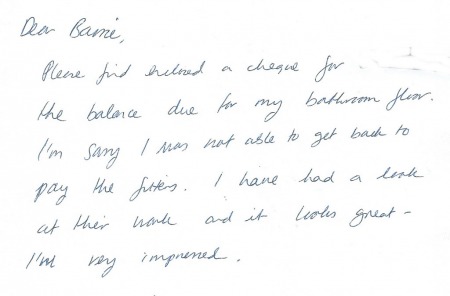 Dear Barrie,
Please find enclosed a cheque for
the balance due for my bathroom floor.
I'm sorry I was not able to get back to
pay the fitters. I have had a look
at their work and it looks great -
I'm very impressed.